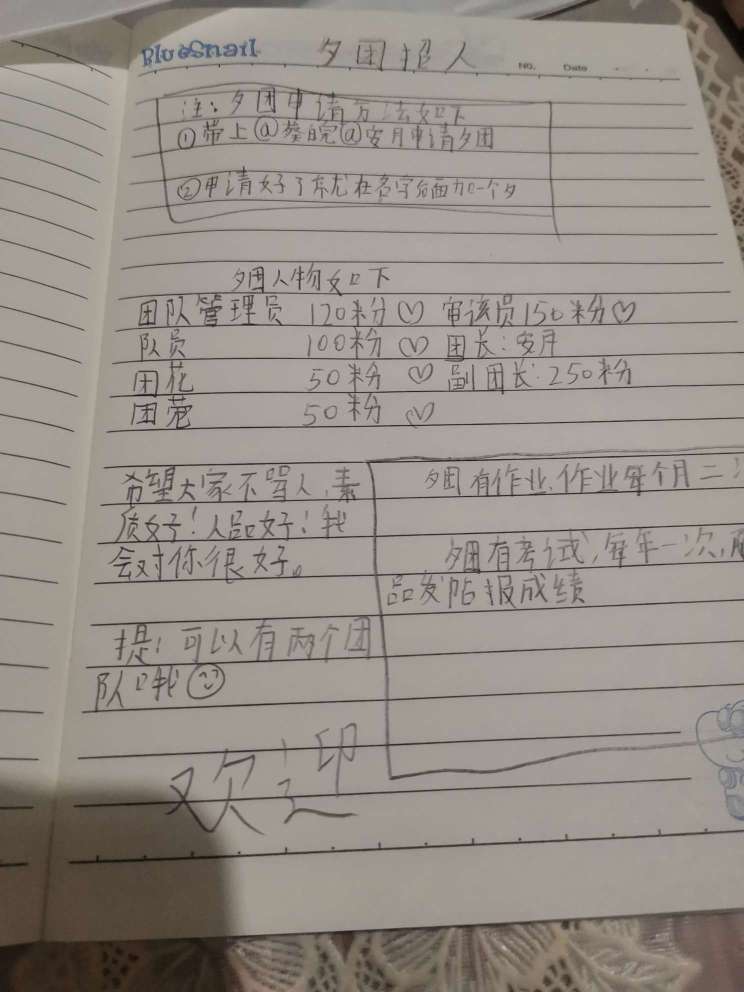 BlueSnail
夕团招人
NO.
Date
注:夕团申请方法如下
①带上@葵皖@安月申请夕团
②申请好了尔尤在名字后面加一个夕
夕团人物如下
团队管理员 120粉♡ 审该员150粉♡
队员 100粉♡ 团长:安月
团花 50粉♡ 副团长:250粉
团苞 50粉♡
希望大家不骂人,素
质好!人品好!我
会对你很好。
提!可以有两个团
队哦
夕团有作业,作业每个月二
夕团有考试,每年一次,
品发帖报成绩
欢迎